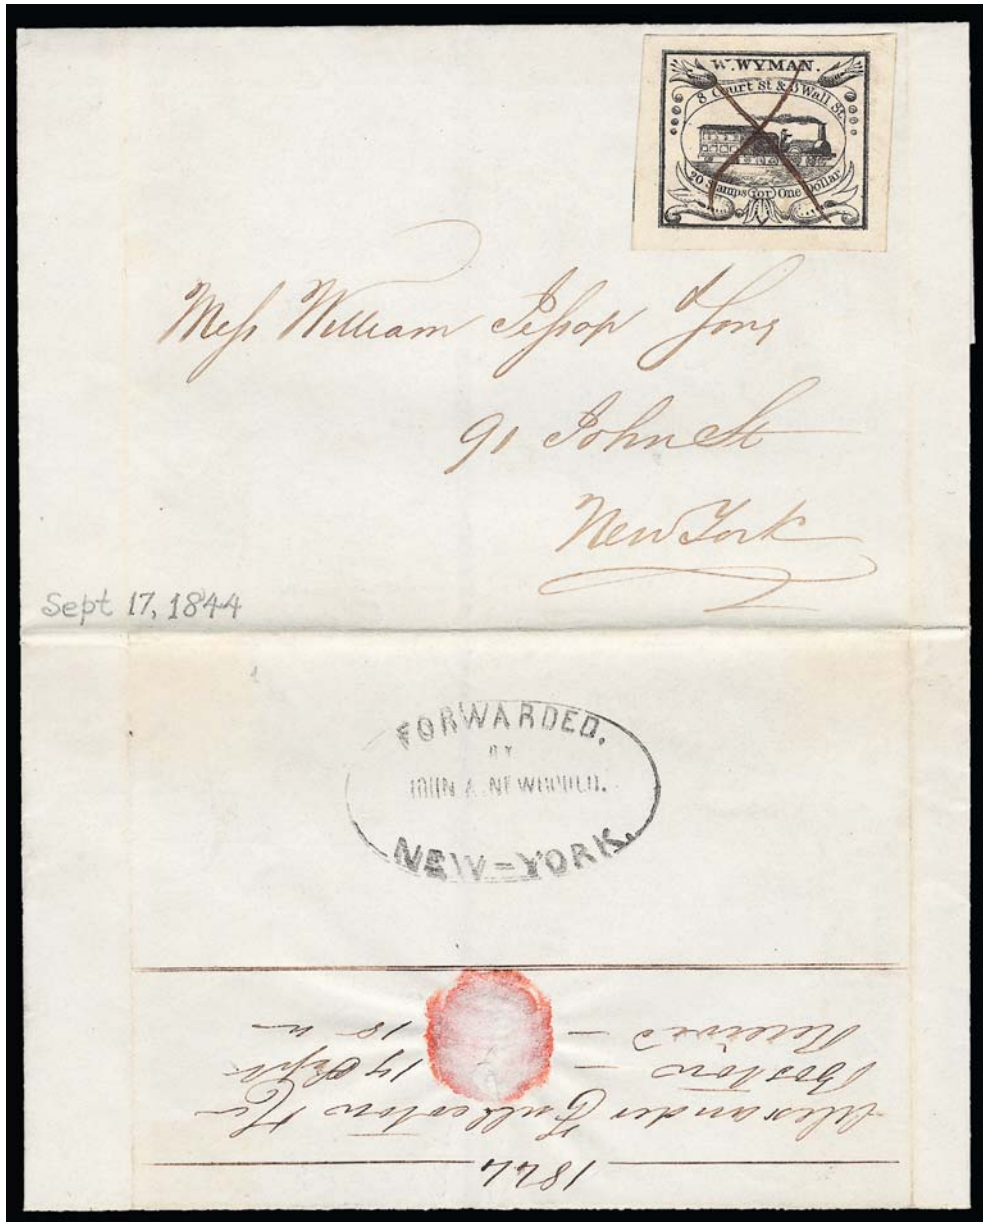 W. WYMAN.
8 Court St & 9 Wall St.
20 Stamps for One Dollar
Mess William Jessop & Sons
91 John St
New York
Sept 17, 1844
FORWARDED.
BY
JOHN A. NEWBOULD.
NEW=YORK.
1844
Alexander Fullerton & Co
Boston — 17 Sept
Received — 18 "